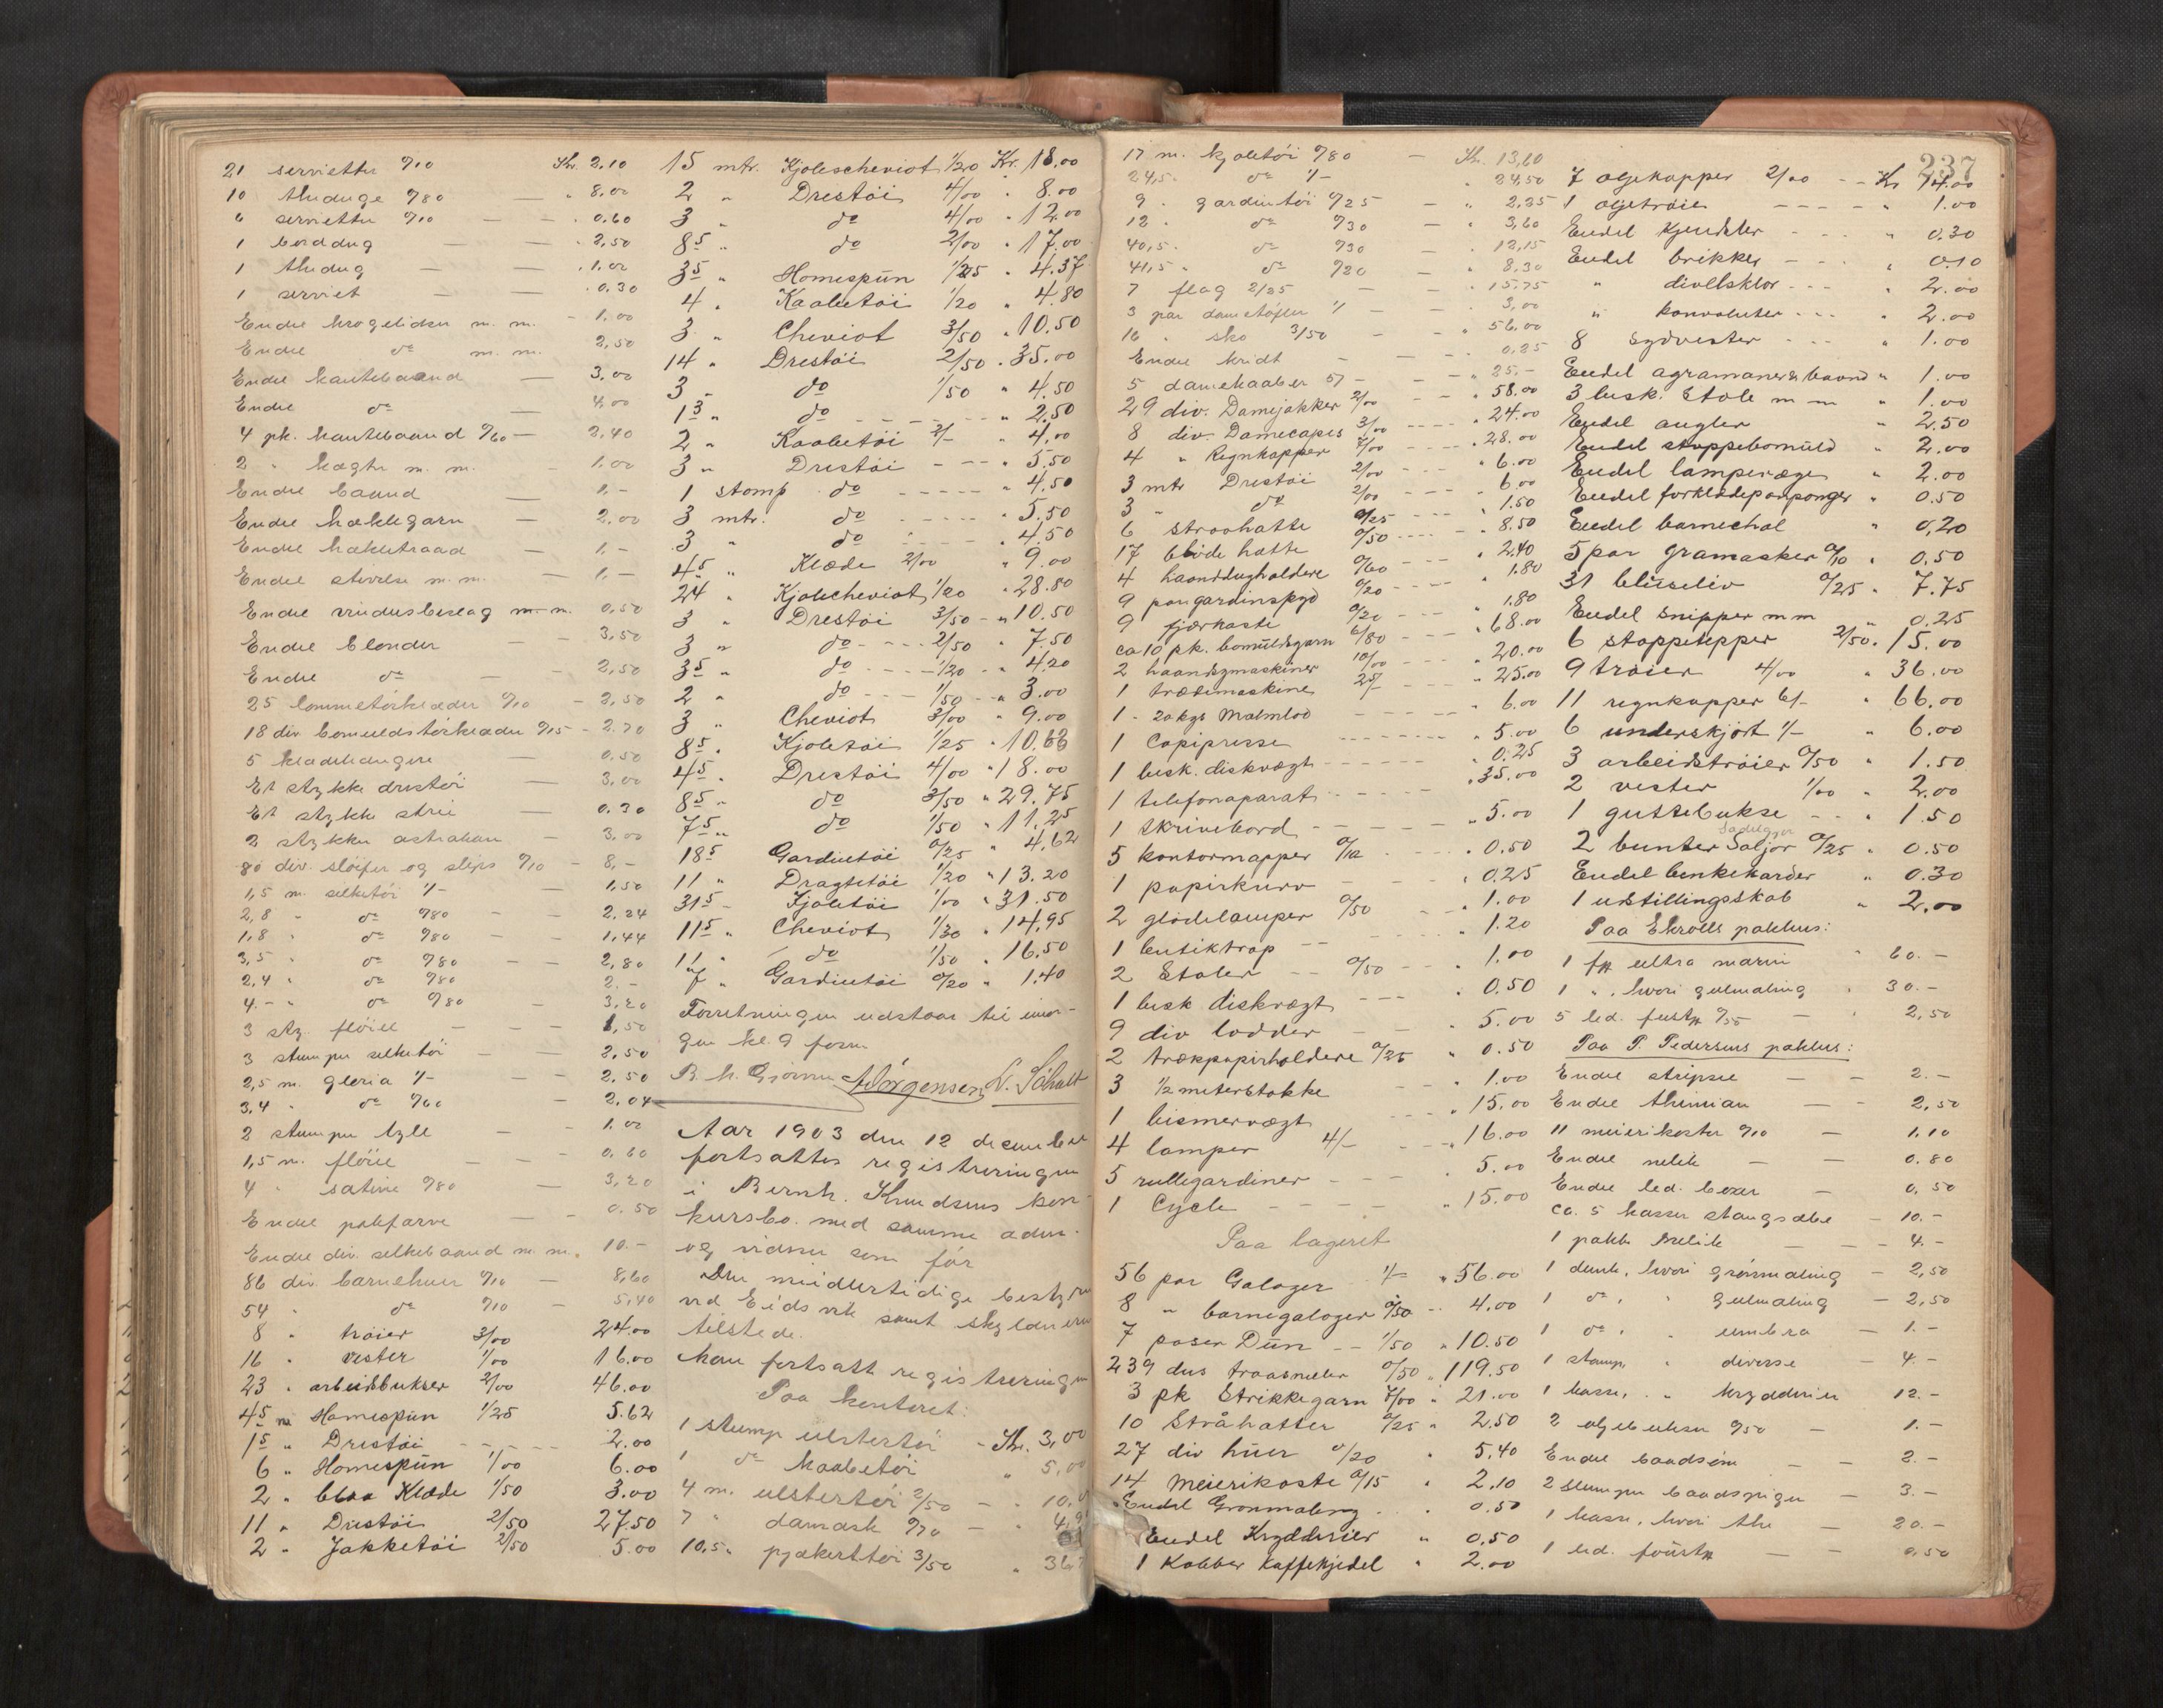 21 servietter 0/10 Kr. 2,10
10 theduge 0/80 — " 8,00
6 servietter 0/10 — — " 0,60
1 borddug — — " 2,50
1 thedug — — " 1,00
1 serviet — — " 0,30
Endel m. m. — 1,00
Endel do m. m. 2,50
Endel kantebaand — 3,00
Endel do — 4,00
4 pk. kantebaand 0/60 — 2,40
2 " hægter m. m. — 1,00
Endel baand — 1,-
Endel hæklegarn — 2,00
Endel hækletraad — 1,-
Endel stivelse m. m. — 1,-
Endel vinduesbeslag m. m. 0,50
Endel blonder — — 3,50
Endel do — — 2,50
25 lommetørklæder 0/10 — 2,50
18 div. bomuldstørklæder 0/15 — 2.70
5 klædehængere — 0,50
Et stykke drestøi — 3,00
Et stykke strie — 0.30
2 stykker astrakan — 3,00
80 div. sløifer og slips 0/10 — 8,-
1,5 m. silketøi 1/- — 1,50
2,8 " do 0/80 — — 2,24
1,8 " do 0/80 — — 1,44
3,5 " do 0/80 — — 2,80
2,4 " do 0/80 2.-
4.- " do 0/80 — 3,20
3 stk. fløiel — — 1,50
3 stumper silketøi — — 2,50
2,5 m. gloria 1/- — — 2,50
3,4 " do 0/60 — 2,04
2 stumper tyll — — 1,00
1,5 m. fløiel — — 0,60
4 " satine 0/80 — — 3,20
Endel pakfarve — — 0.50
Endel div. silkebaand m. m. 10.-
86 div. barnehuer 0/10 — 8,60
54 " do 0/10 — 5,40
8 " trøier 3/00 24.00
16 " vester 1/00 16.00
23 " arbeidsbukser 2/00 46.00
4 5 m Homespün 1/25 5.62
1 5 " Drestøi - - - 2.00
6 " Homespün 1/00 6.00
2 " blaa Klæde 1/50 3.00
11 " Drestøi 2/50 27.50
2 " Jakketøi 2/50 5.00
15 mtr. Kjolescheviot 1/20 Kr. 18.00
2 " Drestøi 4/00 " 8.00
3 " do 4/00 " 12.00
8 5 " do 2/00 " 17.00
3 5 " Homespün 1/25 " 4.37
4 " Kaabetøi 1/20 " 4.80
3 " Cheviot 3/50 " 10.50
14 " Drestøi 2/50 " 35.00
3 " do 1/50 " 4.50
1 3 " do - - - " 2.50
2 " Kaabetøi 2/- " 4.00
3 " Drestøi - - - " 5.50
1 stomp do - - - - - " 4.50
3 mtr. do - - - - " 5.50
3 " do - - - - " 4.50
4 5 " Klæde 2/00 " 9.00
24 " Kjolecheviot 1/20 " 28.80
3 " Drestøi 3/50 - " 10.50
3 " do - - - 2/50 " 7.50
3 5 " do - - - 1/20 " 4.20
2 " do - - - 1/50 - " 3.00
3 " Cheviot 3/00 " 9.00
8 5 " Kjoletøi 1/25 " 10.63
4 5 " Drestøi 4/00 " 18.00
8 5 " do 3/50 " 29.75
7 5 " do 1/50 " 11.25
18 5 Gardintøi 0/25 " 4.62
11 " Dragttøi 1/20 " 13.20
31 5 - Kjoletøi 1/00 " 31.50
11 5 " Cheviot 1/30 " 14.95
11 " do 1/50 " 16.50
7 " Gardintøi 0/20 " 1.40
Forretningen udstaar til imor-
gen kl. 9 form.
Jørgensen N. Schult
Aar 1903 den 12 december
fortsattes registreringen
i Bernh. Knudsens kon-
kursbo. med samme adm.
og vidner som før
Den midlertidige bestyrer
ved Eidsvik samt skyldneren
tilstede.
Man fortsatte registreringen
Paa kontoret:
1 stump ulstertøi - Kr. 3,00
1 do kaabetøi " 5,00
4 m. ulstertøi 2/50 — " 10,0
7 " damask 0/70 — " 4,9
10,5 " pjækerttøi 3/50 " 36,7
237
17 m. kjoletøi 0/80 — Kr. 13,60
24,5 " do 1/- " 24,50
9 " gardintøi 0/25 — " 2,25
12 " do 0/30 — " 3,60
40,5 " do 0/30 — " 12,15
41,5 " do 0/20 — " 8,30
7 flag 2/25 — " 15.75
3 par dametøfler 1/- — " 3,00
16 " sko 3/50 — " 56.00
Endel kridt — " 0,25
5 damekaaber 5/- — " 25.-
29 div. Damejakker 2/00 - - " 58.00
8 div. Damecapes 3/00 - - - - " 24.00
4 " Regnkapper 7/00 - - - " 28.00
3 mtr Drestøi 2/00 - - - " 6.00
3 " do 2/00 - - - " 6.00
6 straahatte 0/25 - - - - " 1.50
17 bløde hatte 0/50 - - - - " 8.50
4 haanddugholdere 0/60 - - - " 2.40
9 par gardinspyd 0/20 - - - " 1.80
9 fjærkoste 0/20 - - - " 1.80
ca 10 pk. bomüldsgarn 6/80 - - - " 68.00
2 haandsymaskiner 10/00 - - - " 20.00
1 trædemaskine 25/- - - - " 25.00
1 - 20 kgs Malmlod - - - - - " 6.00
1 Copipresse - - - - - - " 5.00
1 besk. diskvægt - - - - - - " 0.25
1 telefonaparat - - - - - " 35.00
1 skrivebord - - - - - " 5.00
5 kontormapper 0/10 " 0.50
1 papirkurv - - " 0.25
2 glødelamper 0/50 " 1.00
1 butiktrap - - " 1.20
2 Stoler - - 0/50 - - " 1.00
1 besk diskvægt - - - " 0.50
9 div lodder - - " 5.00
2 trækpapirholdere 0/25 " 0.50
3 1/2 meterstokke - - - " 1.00
1 bismervægt - - - " 15.00
4 lamper 4/- - - - " 16.00
5 rullegardiner - - - " 5.00
1 Cycle - - - - - " 15.00
Paa lageret
56 par Galoger 1/- " 56.00
8 " barnegaloger 0/50 - - 4.00
7 poser Dün - - 1/50 " 10.50
239 dus traasneller 0/50 " 119.50
3 pk Strikkegarn 7/00 " 21.00
10 Stråhatter 0/25 " 2.50
27 div hüer 0/20 " 5.40
14 Meierikoste 0/15 " 2.10
Endel Grønmaling " 0.50
Endel Krydderier " 0.50
1 Kobber Kaffekjedel " 2.00
7 oljekapper 2/00 - - Kr 14.00
1 oljetrøie - - - - " 1.00
Endel - - - " 0.30
Endel brikker - - - " 0.10
" - - - " 2.00
" konvoluter - - - " 2.00
8 sydvester - - - " 1.00
Endel agramaner & baand " 1.00
3 besk. Stole m m " 1.00
Endel angler " 2.50
Endel stoppebomüld " 2.00
Endel lampevæger " 2.00
Endel forklædeponponger " 0.50
Endel barnechal " 0,20
5 par gramasker 0/10 " 0.50
31 blüseliv 0/25 " 7.75
Endel snipper m m " 0.25
6 stoppetepper 2/50 " 15.00
9 trøier 4/00 " 36.00
11 regnkapper 6/- " 66.00
6 underskjørt 1/- " 6.00
3 arbeidstrøier 0/50 " 1.50
2 vester 1/00 " 2.00
1 guttebukse - - " 1.50
2 bunter Saljor 0/25 " 0.50
Endel benkekarder " 0.30
1 udstillingsskab " 2.00
Paa Ekrolls pakhus:
1 ultra marin " 60.-
1 " , hvori gulmaling " 30.-
5 led. 0/50 — 2,50
Paa P. Pedersens pakhus:
Endel stripsel — — 2.-
Endel thimian — — 2,50
11 meierikoster 0/10 — 1.10
Endel nellik — — 0.80
Endel led. boxer — 0,50
ca. 5 kasser stangsæbe — 10.-
1 pakke — — 4.-
1 dunk, hvori grønmaling — 2,50
1 do , " gulmaling — 2,50
1 do , " umbra — 1.-
1 stamp, " diverse — 4.-
1 kasse, " krydderier 12.-
2 oljebukser 0/50 — 1.-
Endel baadsøm — — 2.-
2 stumper baadspiger — 3.-
1 kasse, hvori the — 20.-
1 led. — — 0,50